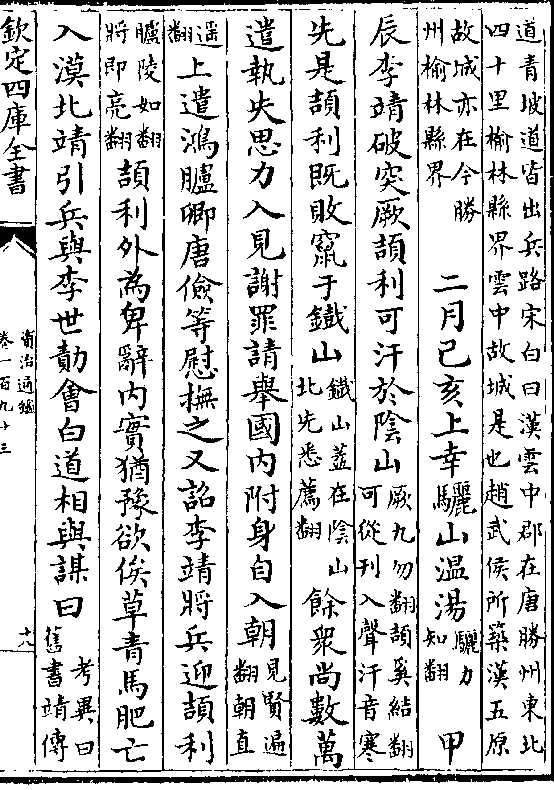 道青坡道皆出兵路宋白曰漢雲中郡在唐勝州東北
四十里榆林縣界雲中故城是也趙武侯所築漢五原
故城亦在今勝
州榆林縣界
二月己亥上幸驪山温湯
驪力
知翻
甲
辰李靖破突厥頡利可汗於陰山
厥九勿翻頡奚結翻
可從刊入聲汗音寒
先是頡利既敗竄于鐵山
鐵山蓋在陰山
北先悉薦翻
餘衆尚數萬
遣執失思力入見謝罪請舉國内附身自入朝
見賢遍
翻朝直
遥
翻
上遣鴻臚卿唐儉等慰撫之又詔李靖將兵迎頡利
臚陵如翻
將即亮翻
頡利外為卑辭内實猶豫欲俟草青馬肥亡
入漠北靖引兵與李世勣會白道相與謀曰
考異曰
舊書靖傳
欽定四庫全書
資治通鑑
卷一百九十三
十八